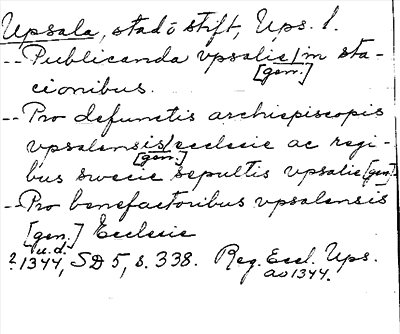 Upsala, stad o stift, Ups. l.
-- Publicanda vpsalis/in sta-
[gen.]
cionibus.
-- Pro defunctis archiepiscopis
vpsalensis/ecclesie ac regi-
[gen.]
bus swecie sepultis vpsalie [gen.]
-- Pro benefactoribus vpsalensis
[gen.] Ecclesie
u.d.
? 1344, SD 5, s. 338. Reg. Eccl. Ups.
ao 1344.